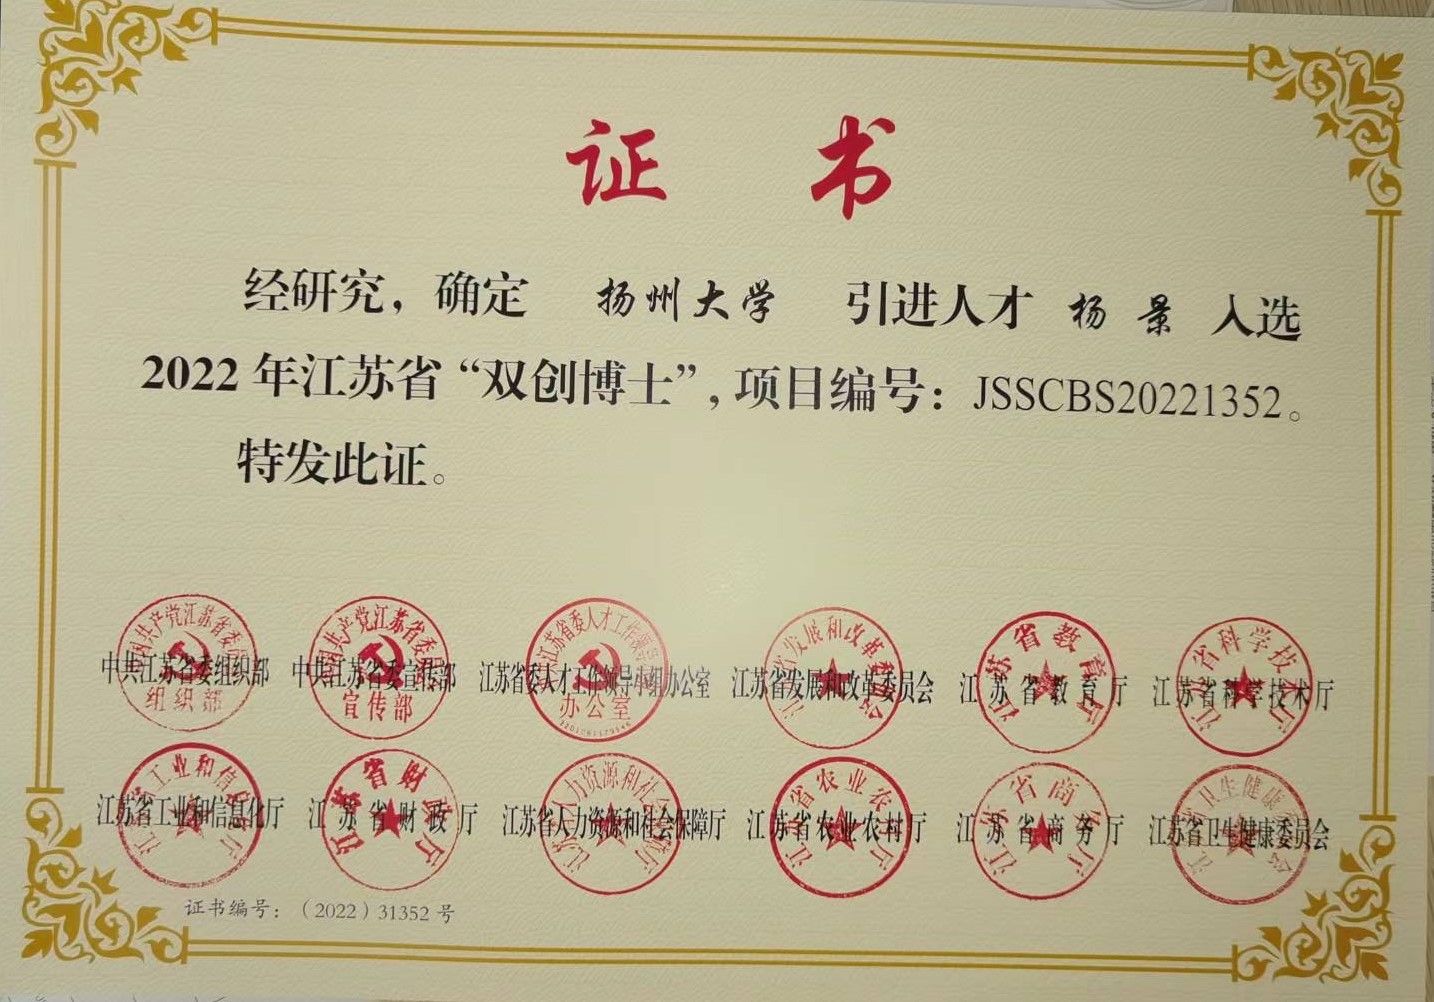 证 书
经研究，确定 扬州大学 引进人才 杨景 入选
2022年江苏省“双创博士”，项目编号：JSSCBS20221352。
特发此证。
中共江苏省委组织部 中共江苏省委宣传部 江苏省委人才工作领导小组办公室 江苏省发展和改革委员会 江苏省教育厅 江苏省科学技术厅
组织部 宣传部 办公室
江苏省工业和信息化厅 江苏省财政厅 江苏省人力资源和社会保障厅 江苏省农业农村厅 江苏省商务厅 江苏省卫生健康委员会
证书编号：（2022）31352号